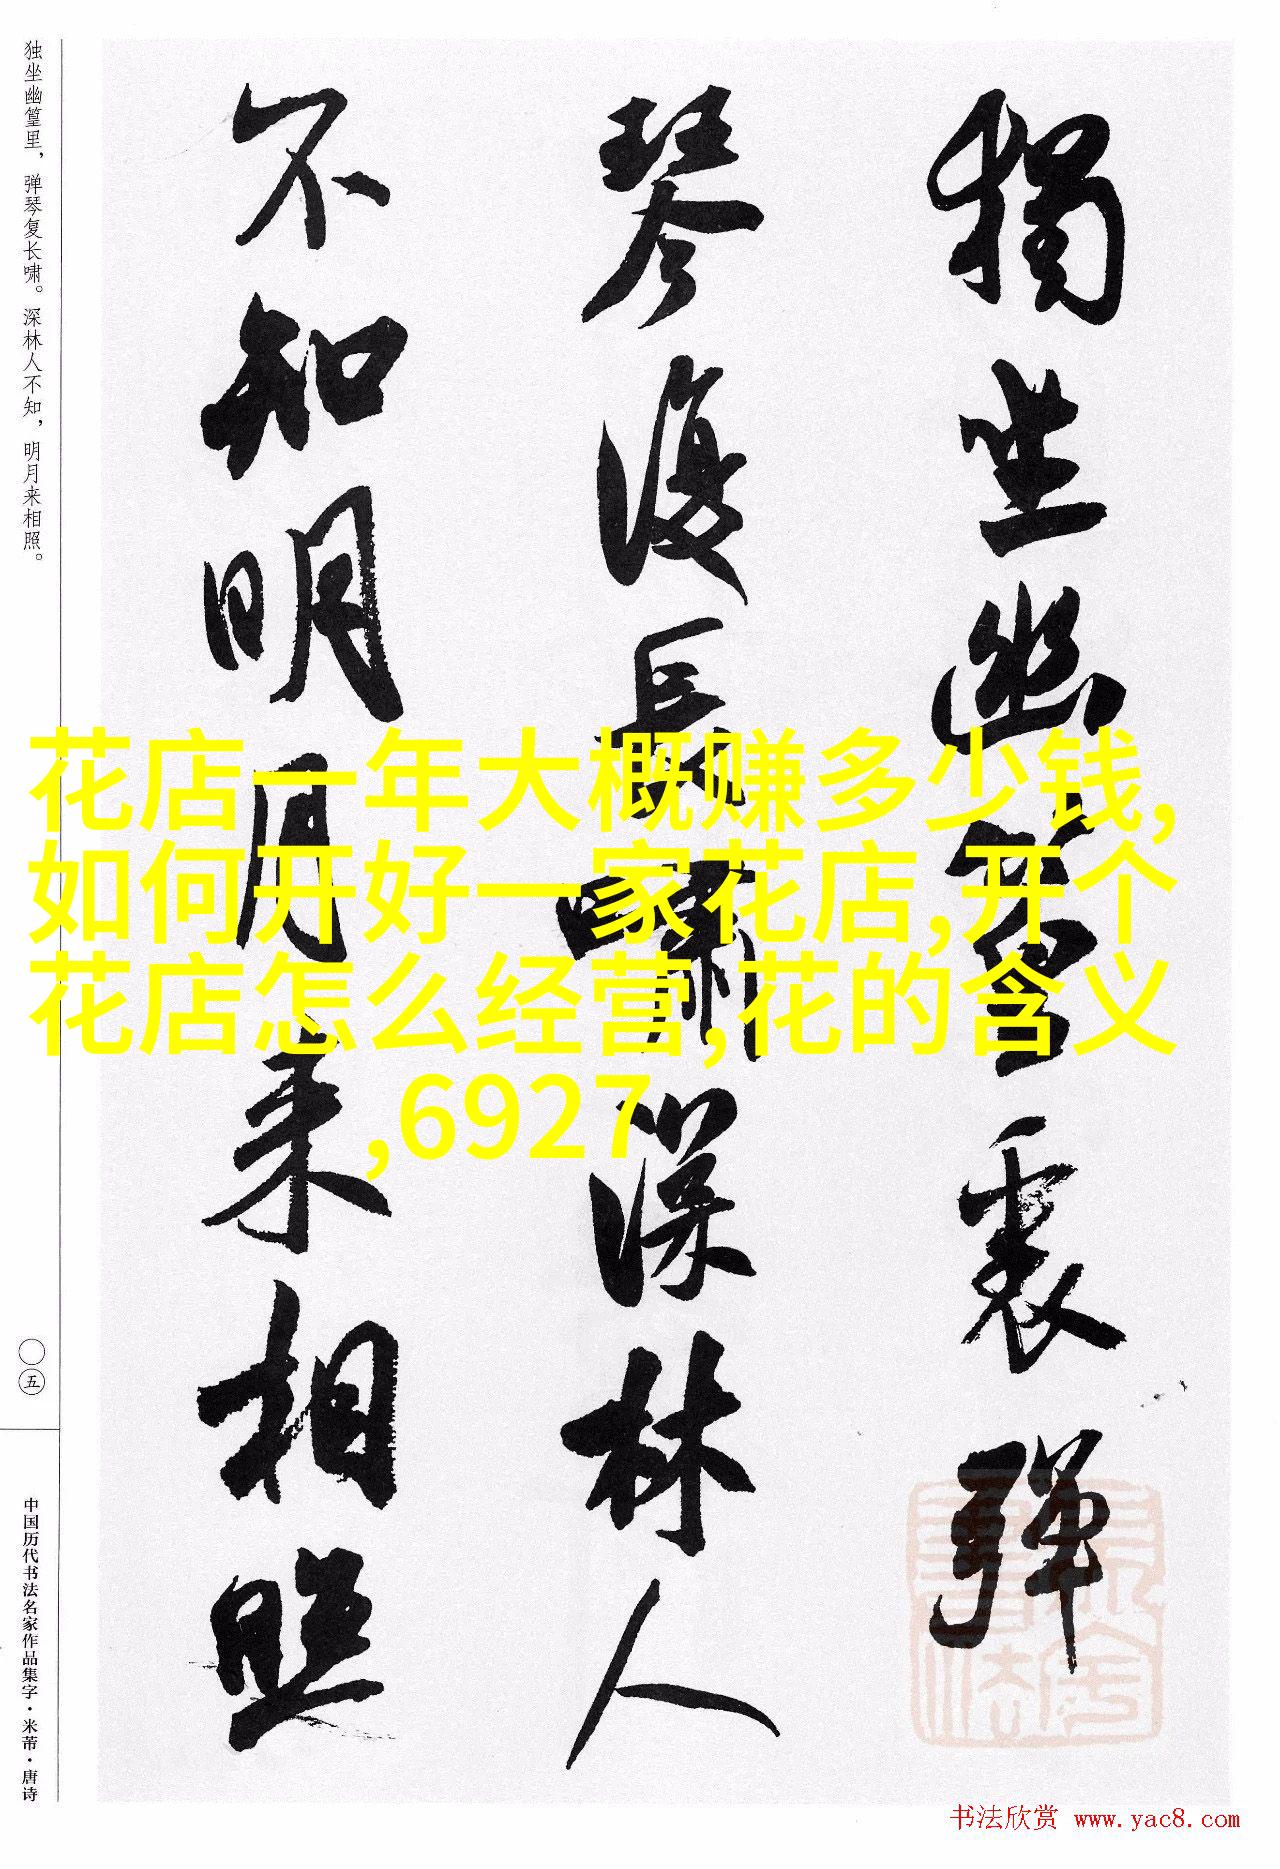 独坐幽篁里，弹琴复长啸。深林人不知，明月来相照。
〇五
中国历代书法名家作品集字·米芾·唐诗
獨坐幽篁裏彈
琴復長嘯深林人
不知明月来相照
花店一年大概赚多少钱,
如何开好一家花店,开个
花店怎么经营,花的含义
,6927
书法欣赏 www.yac8.com